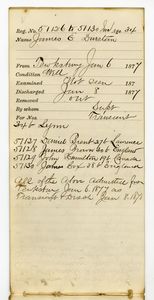 Reg. No. 51126 to 51130 Inv. age 34
Name James E
From Tewksbury Jan 6 1877
Condition Well
Examined Not seen
Discharged Jan 8 1877
Removed out
By whom Supt
For Nos. Transient
34 Lynn
51127 Daniel 27 Lawrence
51128 James Brown 20 England
51129 John Hamilton 49 Canada
51130 James Cox 38 England
All of the above admitted from
Tewksbury Jan 6. 1877 as
Transient & Disch Jan 8. 1877